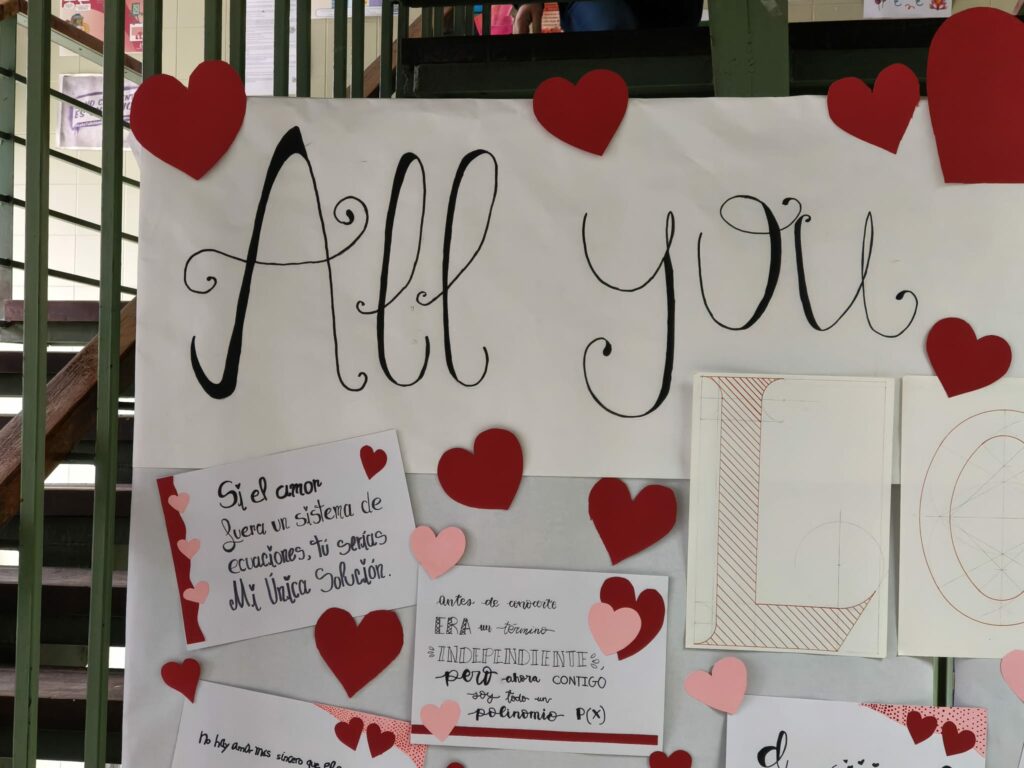 All you
L O
Si el amor
fuera un sistema de
ecuaciones, tú serías
Mi Única Solución.
antes de conocerte
ERA un término
INDEPENDIENTE
pero ahora CONTIGO
soy todo un
polinomio P(X)
No hay amor mas sincero que el